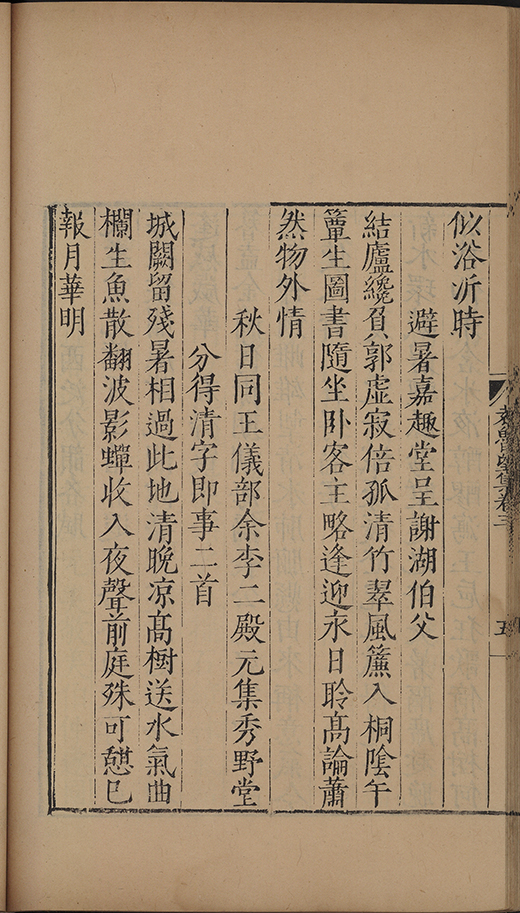 似浴沂時
避暑嘉趣堂呈謝湖伯父
結廬纔負郭虛寂倍孤清竹翠風簾入桐陰午
簟生圖書隨坐卧客主略逢迎永日聆高論蕭
然物外情
秋日同王儀部余李二殿元集秀野堂
分得清字即事二首
城闕留殘暑相過此地清晩凉高樹送水氣曲
欄生魚散翻波影蟬收入夜聲前庭殊可憩已
報月華明